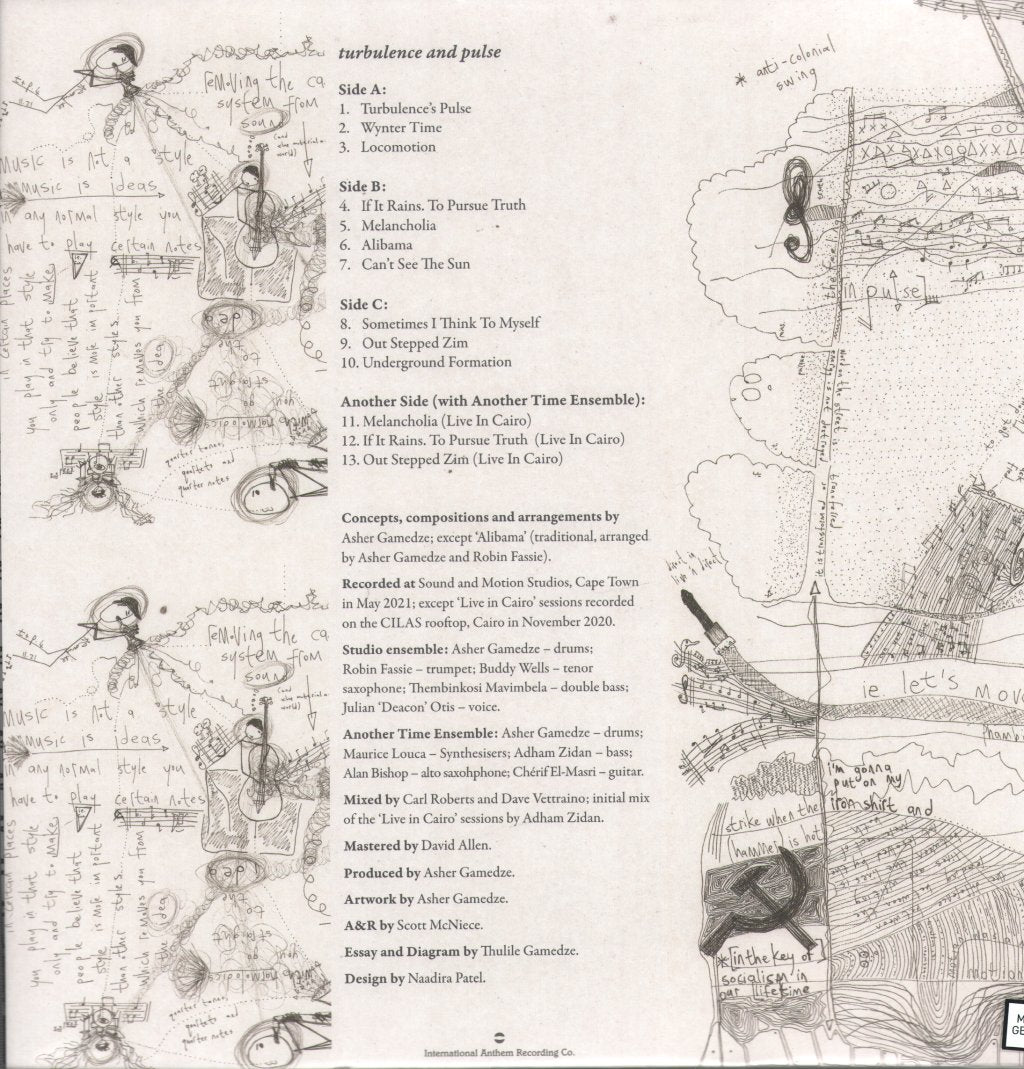 turbulence and pulse
Side A:
1. Turbulence's Pulse
2. Wynter Time
3. Locomotion
Side B:
4. If It Rains. To Pursue Truth
5. Melancholia
6. Alibama
7. Can't See The Sun
Side C:
8. Sometimes I Think To Myself
9. Out Stepped Zim
10. Underground Formation
Another Side (with Another Time Ensemble):
11. Melancholia (Live In Cairo)
12. If It Rains. To Pursue Truth (Live In Cairo)
13. Out Stepped Zim (Live In Cairo)
Concepts, compositions and arrangements by
Asher Gamedze; except 'Alibama' (traditional, arranged
by Asher Gamedze and Robin Fassie).
Recorded at Sound and Motion Studios, Cape Town
in May 2021; except 'Live in Cairo' sessions recorded
on the CILAS rooftop, Cairo in November 2020.
Studio ensemble: Asher Gamedze – drums;
Robin Fassie – trumpet; Buddy Wells – tenor
saxophone; Thembinkosi Mavimbela – double bass;
Julian 'Deacon' Otis – voice.
Another Time Ensemble: Asher Gamedze – drums;
Maurice Louca – Synthesisers; Adham Zidan – bass;
Alan Bishop – alto saxohphone; Chérif El-Masri – guitar.
Mixed by Carl Roberts and Dave Vettraino; initial mix
of the 'Live in Cairo' sessions by Adham Zidan.
Mastered by David Allen.
Produced by Asher Gamedze.
Artwork by Asher Gamedze.
A&R by Scott McNiece.
Essay and Diagram by Thulile Gamedze.
Design by Naadira Patel.
International Anthem Recording Co.
removing the ca
system from
sound
music is not a style
music is ideas
in any normal style you
have to play certain notes
in certain places
you play in that style
only and try to make
people believe that
style is more important
than other styles.
which removes you from
the idea
quarter tones,
quartets and
quarter notes
removing the ca
system from
sound
music is not a style
music is ideas
in any normal style you
have to play certain notes
you play in that style
only and try to make
people believe that
style is more important
than other styles.
which removes you from
the idea
quarter tones,
quartets and
quarter notes
* anti-colonial
swing
in pulse]
ie let's mov
i'm gonna
put on my
iron shirt and
strike when the
hammer is hot
*[in the key of
socialism in
our lifetime
motion